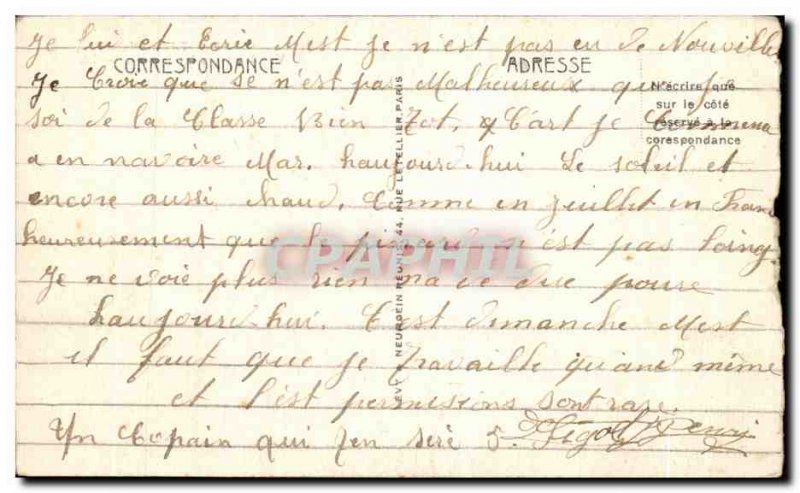 Je lui et Ecrie Mest Je n'est pas eu de Nouville
CORRESPONDANCE
ADRESSE
Je Croie que se n'est pas Malheureux que J
N'écrire que
sur le côté
réservé à la
corespondance
soi de la Classe Bien Tot, Cart Je Commence
a en navoire Mar. haujourd'hui Le soleil et
encore aussi chaud, Comme en Juillet en Franc
heureusement que le pinard n'est pas loing.
Je ne voie plus rien na ce due poure
haujourd'hui. C'est dimanche Mest
il faut que Je travaille quand même
et l'est permisions sont rare.
Un Copain qui ten seré 5.
LEVY NEURDEIN REUNIS. 44, RUE LETELLIER, PARIS
CPAPHIL